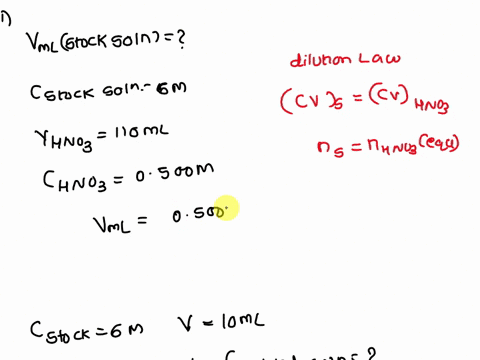 1)
VmL(stock soln)=?
Cstock soln.- 6M
VHNO3 = 110mL
CHNO3 = 0.500M
VmL = 0.500
dilution Law
(CV)s = (CV)HNO3
ns = nHNO3(equ)
Cstock = 6M V = 10mL